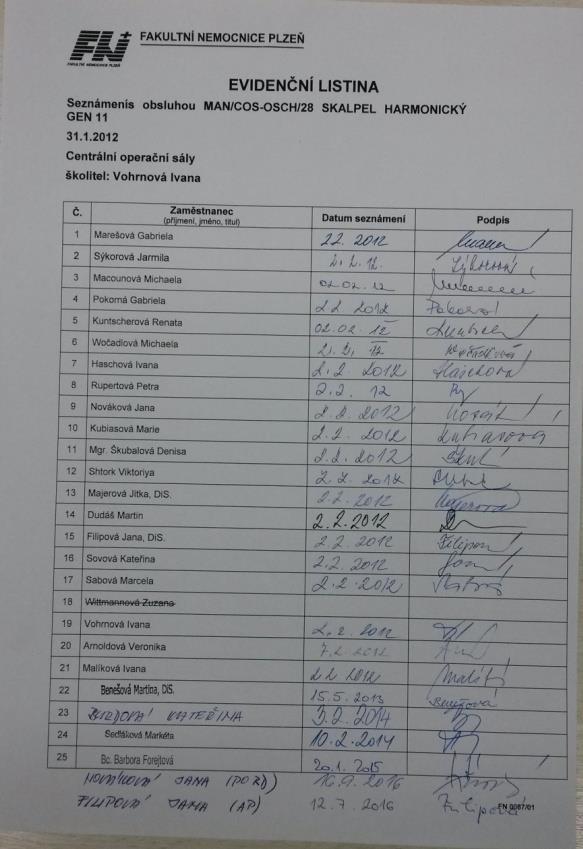 FN
FAKULTNÍ NEMOCNICE PLZEŇ
FAKULTNÍ NEMOCNICE PLZEŇ
EVIDENČNÍ LISTINA
Seznámenís obsluhou MAN/COS-OSCH/28 SKALPEL HARMONICKÝ
GEN 11
31.1.2012
Centrální operační sály
školitel: Vohrnová Ivana
Č. Zaměstnanec (příjmení, jméno, titul) Datum seznámení Podpis
1 Marešová Gabriela 2.2. 2012
2 Sýkorová Jarmila 2.2.12. Sýkorová
3 Macounová Michaela 02.02.12
4 Pokorná Gabriela 2.2 2012
5 Kuntscherová Renata 02.02.12
6 Wočadlová Michaela 2.2.12
7 Haschová Ivana 2.2.2012
8 Rupertová Petra 2.2.12
9 Nováková Jana 2.2.2012
10 Kubiasová Marie 2.2.2012 Kubiasová
11 Mgr. Škubalová Denisa 2.2.2012
12 Shtork Viktoriya 2.2.2012
13 Majerová Jitka, DiS. 2.2.2012
14 Dudáš Martin 2.2.2012
15 Filipová Jana, DiS. 2.2.2012
16 Sovová Kateřina 2.2.2012
17 Sabová Marcela 2.2.2012
18 Wittmannová Zuzana
19 Vohrnová Ivana 2.2.2012
20 Arnoldová Veronika
21 Malíková Ivana 2.2.2012
22 Benešová Martina, DiS. 15.5.2013
23 KATEŘINA 3.2.2014
24 Sedláková Markéta 10.2.2014
25 Bc. Barbora Forejtová 20.1.2015
NOVÁKOVÁ JANA 16.9.2016
FILIPOVÁ JANA (AP) 12.7.2016 Filipová
FN 0087/01